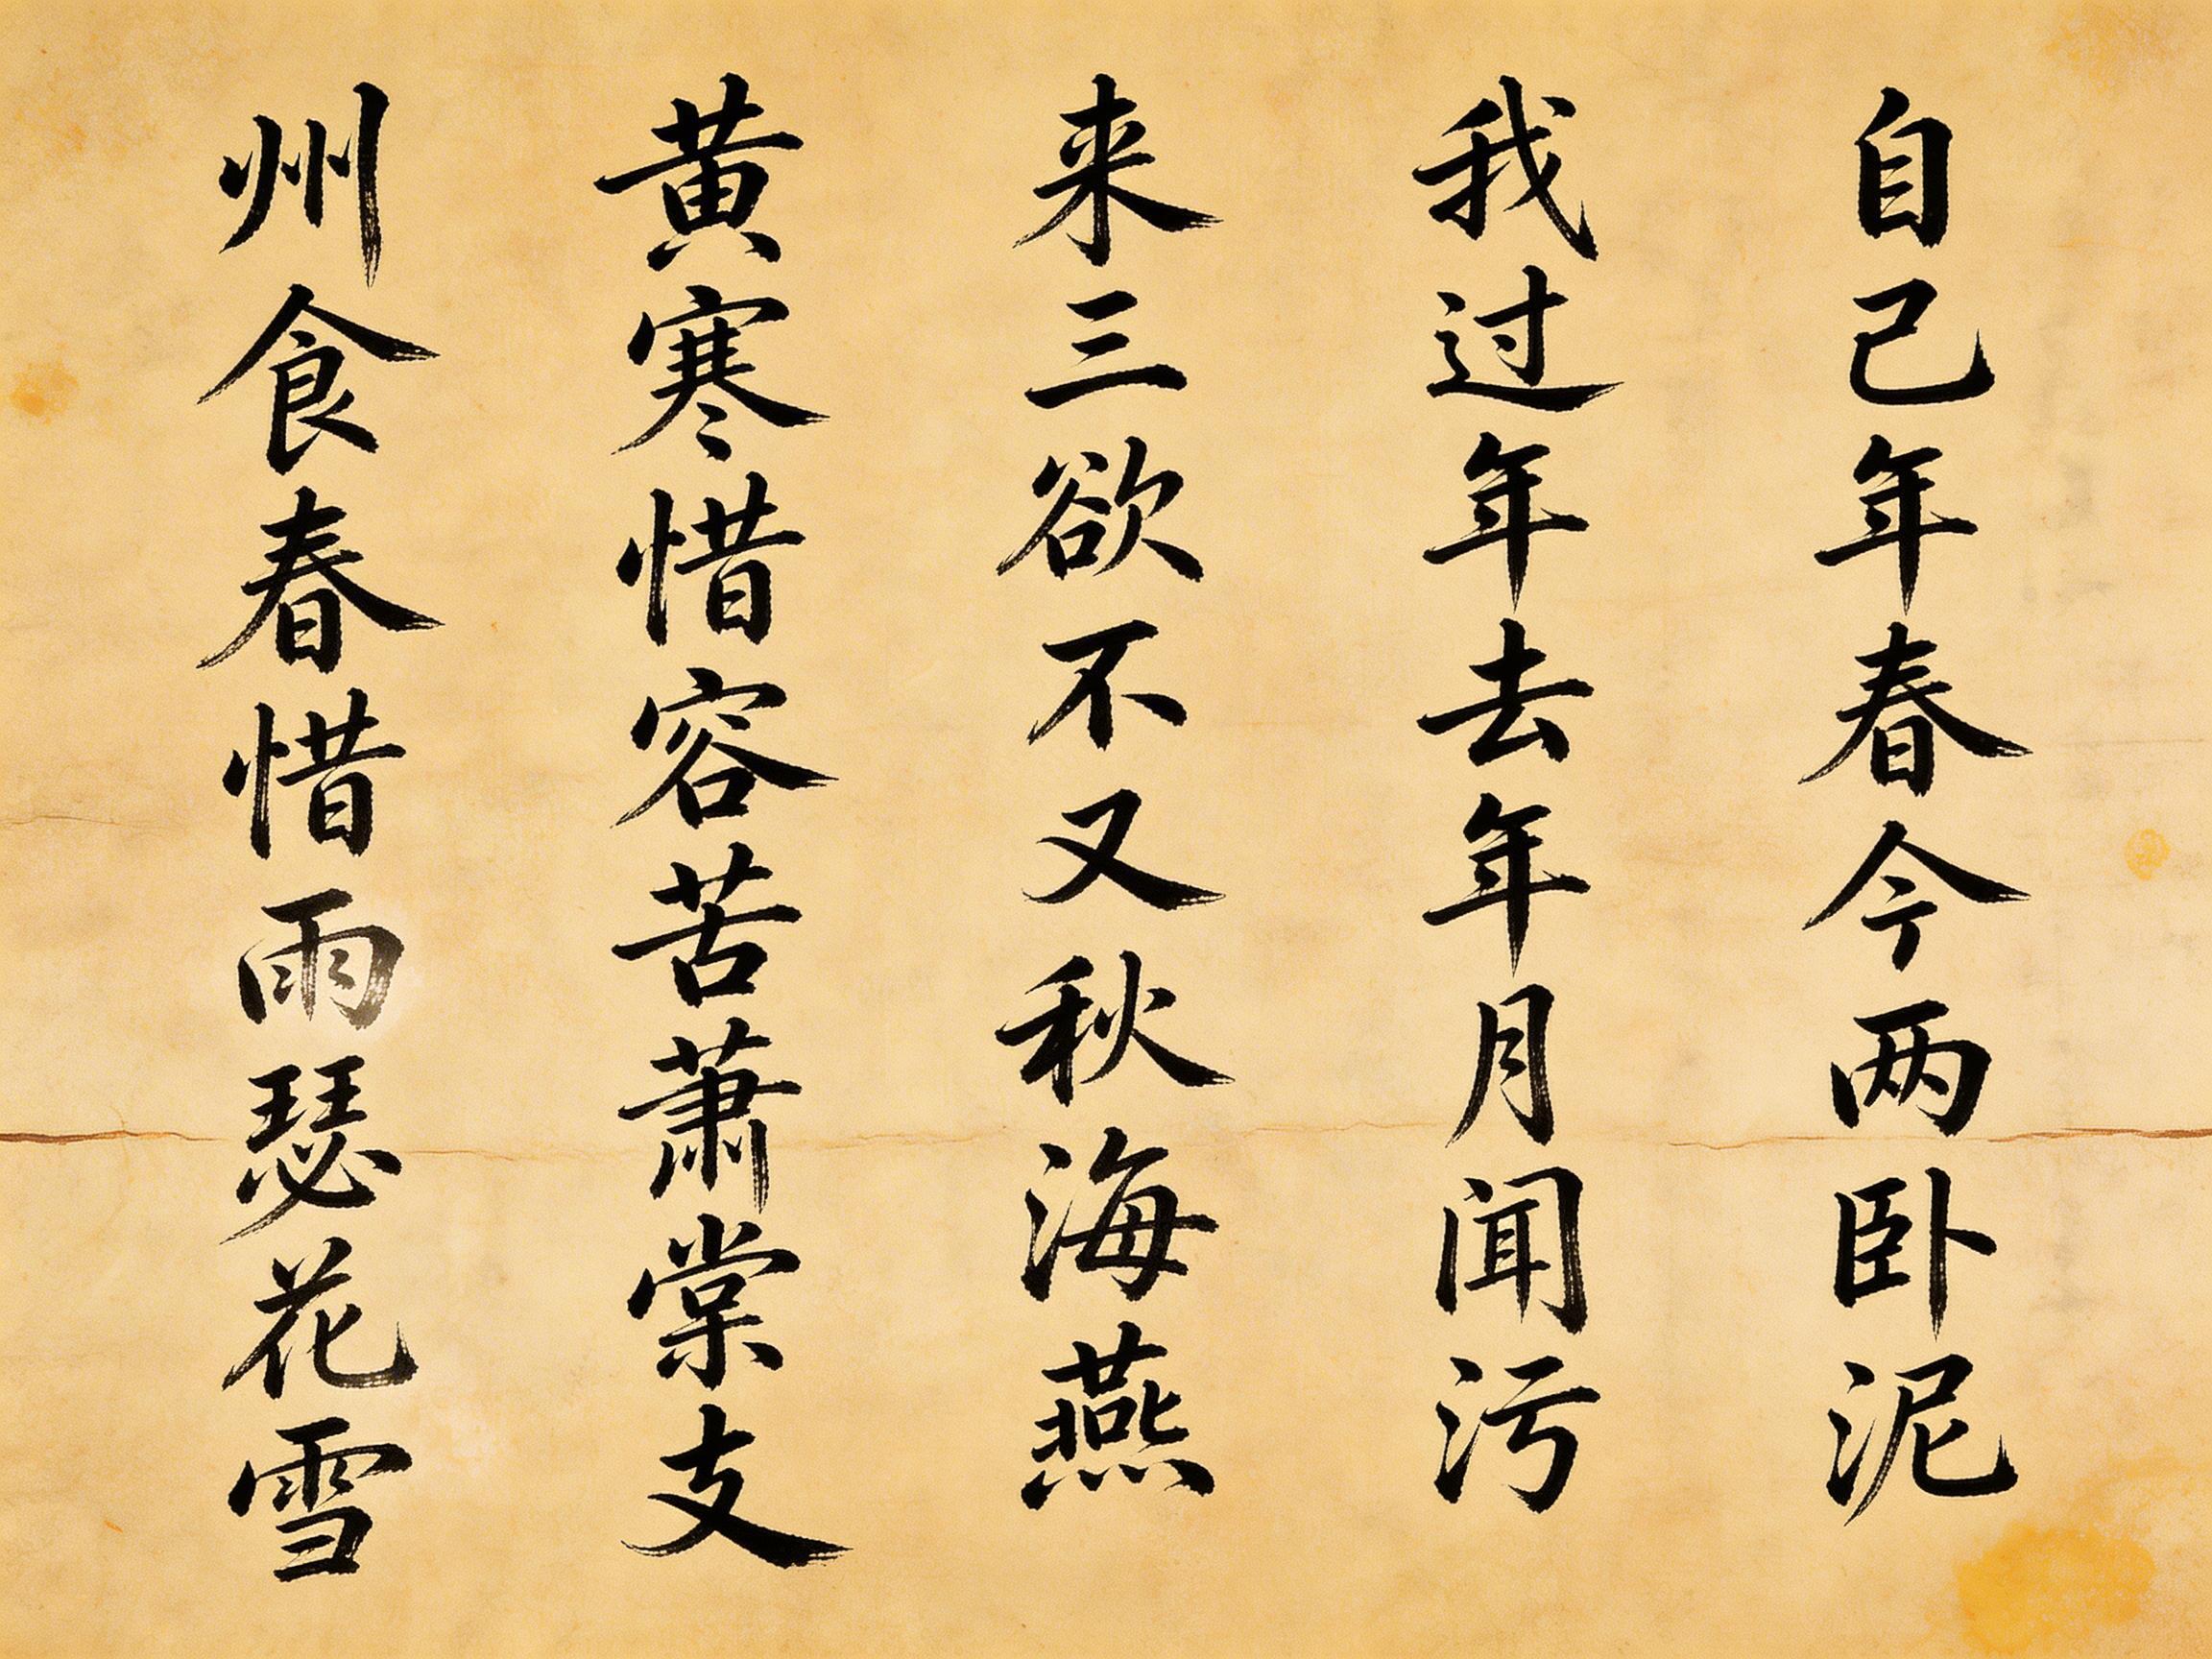 自己年春今两卧泥
我过年去年月闻污
来三欲不又秋海燕
黄寒惜容苦萧棠支
州食春惜雨瑟花雪